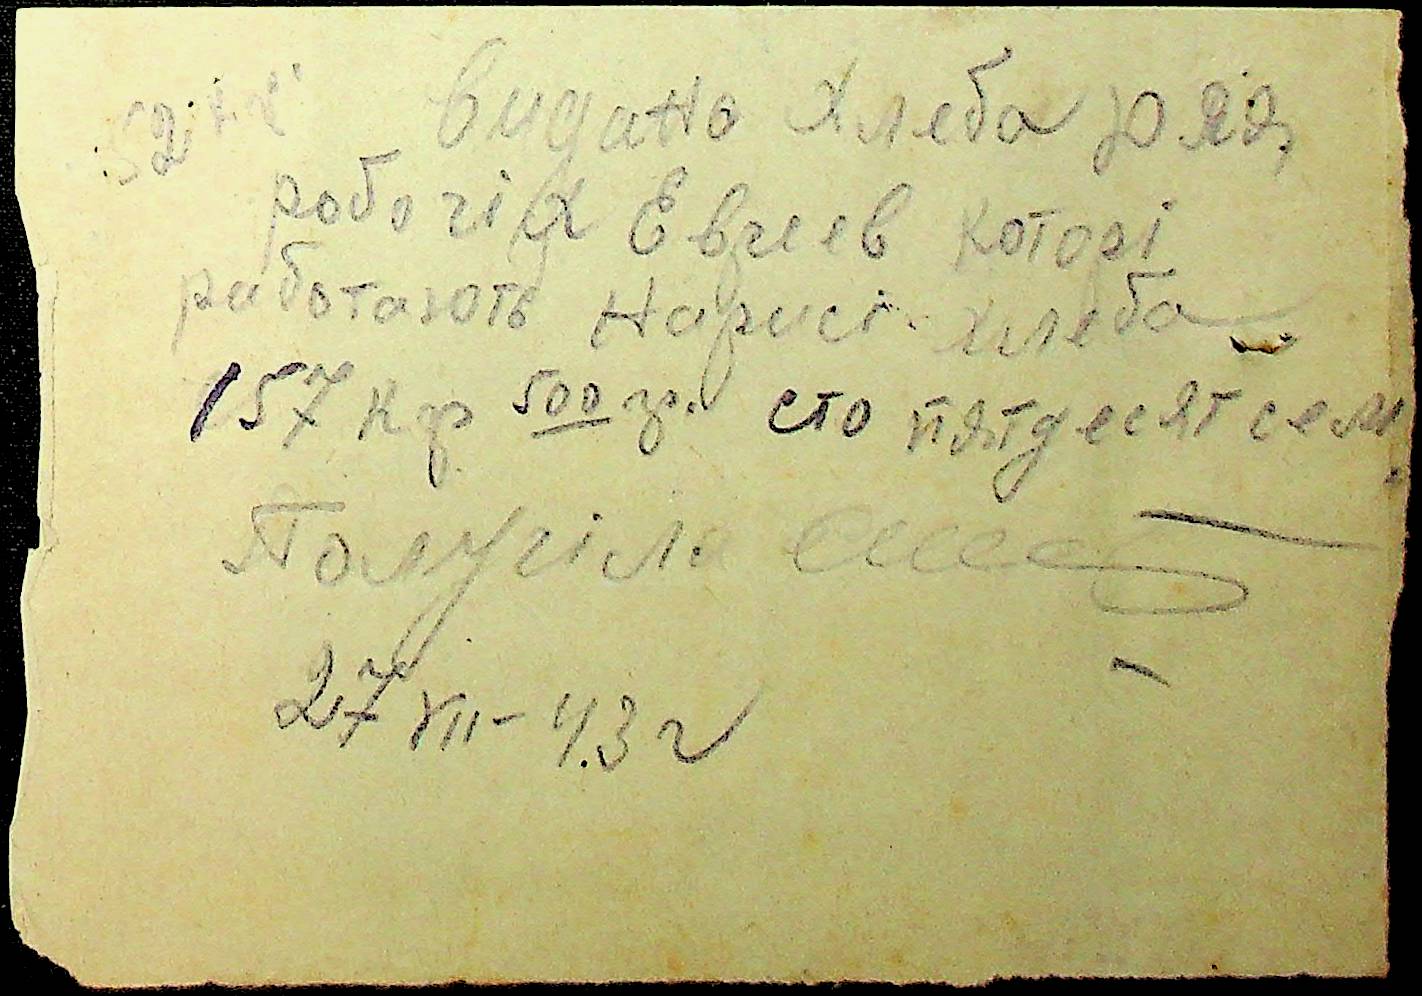 Видано Хлеба для
робочіх Евреев которі
работають Нарисі хлеба
157 кгр 500 гр. сто пятдесят семь
Получіла
27 VII - 43 г